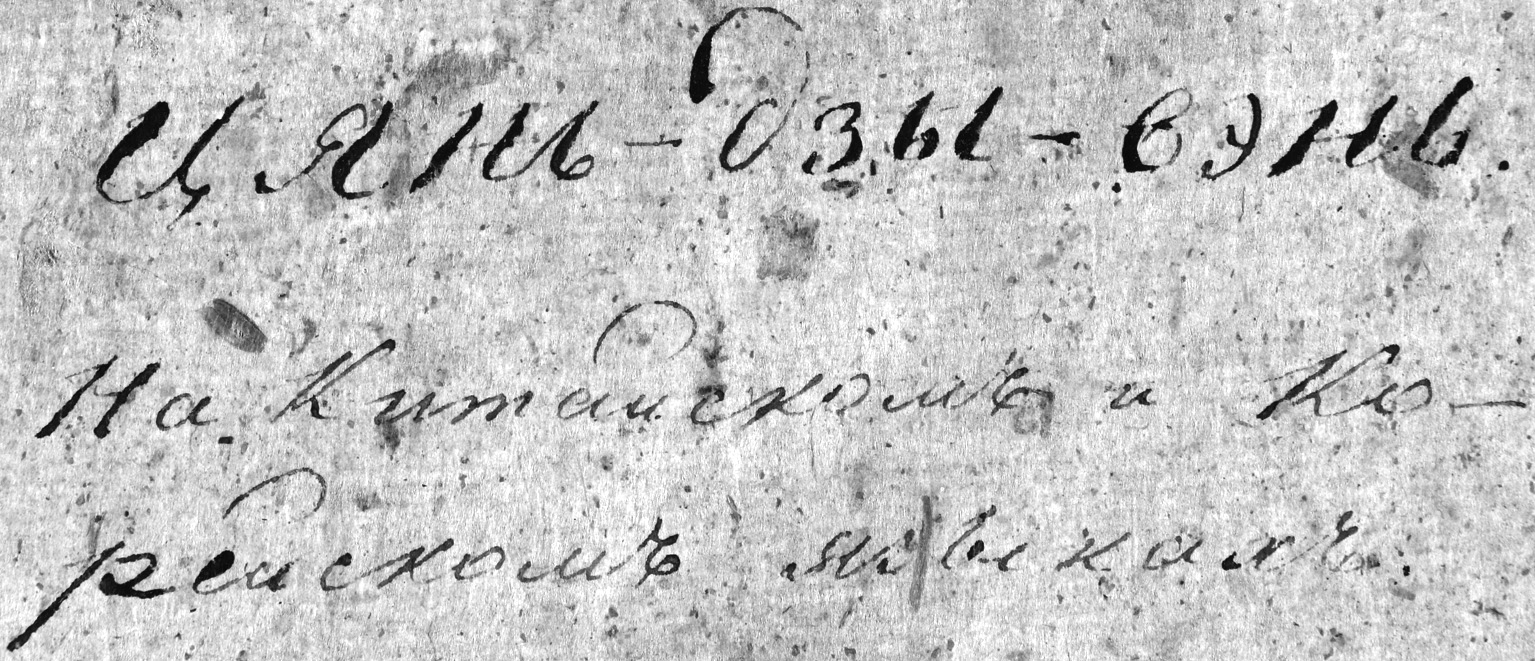 Цянь-дзы-вэнь.
На Китайскомъ и Ко-
рейскомъ языкахъ.